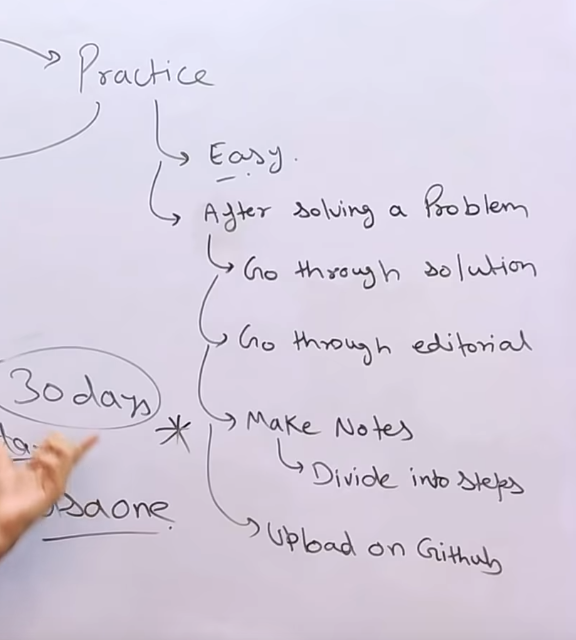 Practice
Easy.
After solving a Problem
Go through solution
Go through editorial
30 days
* Make Notes
Divide into steps
Upload on Github